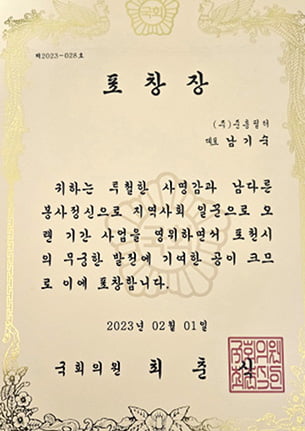 국회
제2023-028호
포 창 장
(주)준용필터
대표 남기숙
귀하는 투철한 사명감과 남다른
봉사정신으로 지역사회 일꾼으로 오
랜 기간 사업을 영위하면서 포천시
의 무궁한 발전에 기여한 공이 크므
로 이에 포창합니다.
2023년 02월 01일
국회의원 최 춘 식